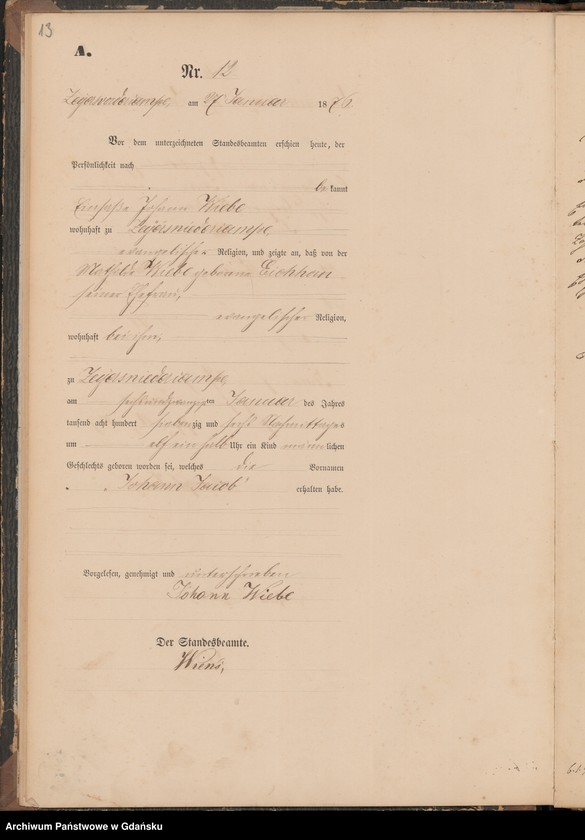 13
A.
Nr. 12
Zeyersniederkampe, am 27 Januar 1876.
Vor dem unterzeichneten Standesbeamten erschien heute, der
Persönlichkeit nach
be kannt
Einsasse Johann Wiebe
wohnhaft zu Zeyersniederkampe
evangelischer Religion, und zeigte an, daß von der
Wiebe geborene Eichhorn
seiner Ehefrau,
evangelischer Religion,
wohnhaft bei ihm,
zu Zeyersniederkampe,
am sechsundzwanzigten Januar des Jahres
tausend acht hundert siebenzig und sechs Nachmittags
um elf einhalb Uhr ein Kind männlichen
Geschlechts geboren worden sei, welches die Vornamen
Johann Jacob
erhalten habe.
Vorgelesen, genehmigt und unterschrieben
Johann Wiebe
Der Standesbeamte.
Wiens,
Archiwum Państwowe w Gdańsku